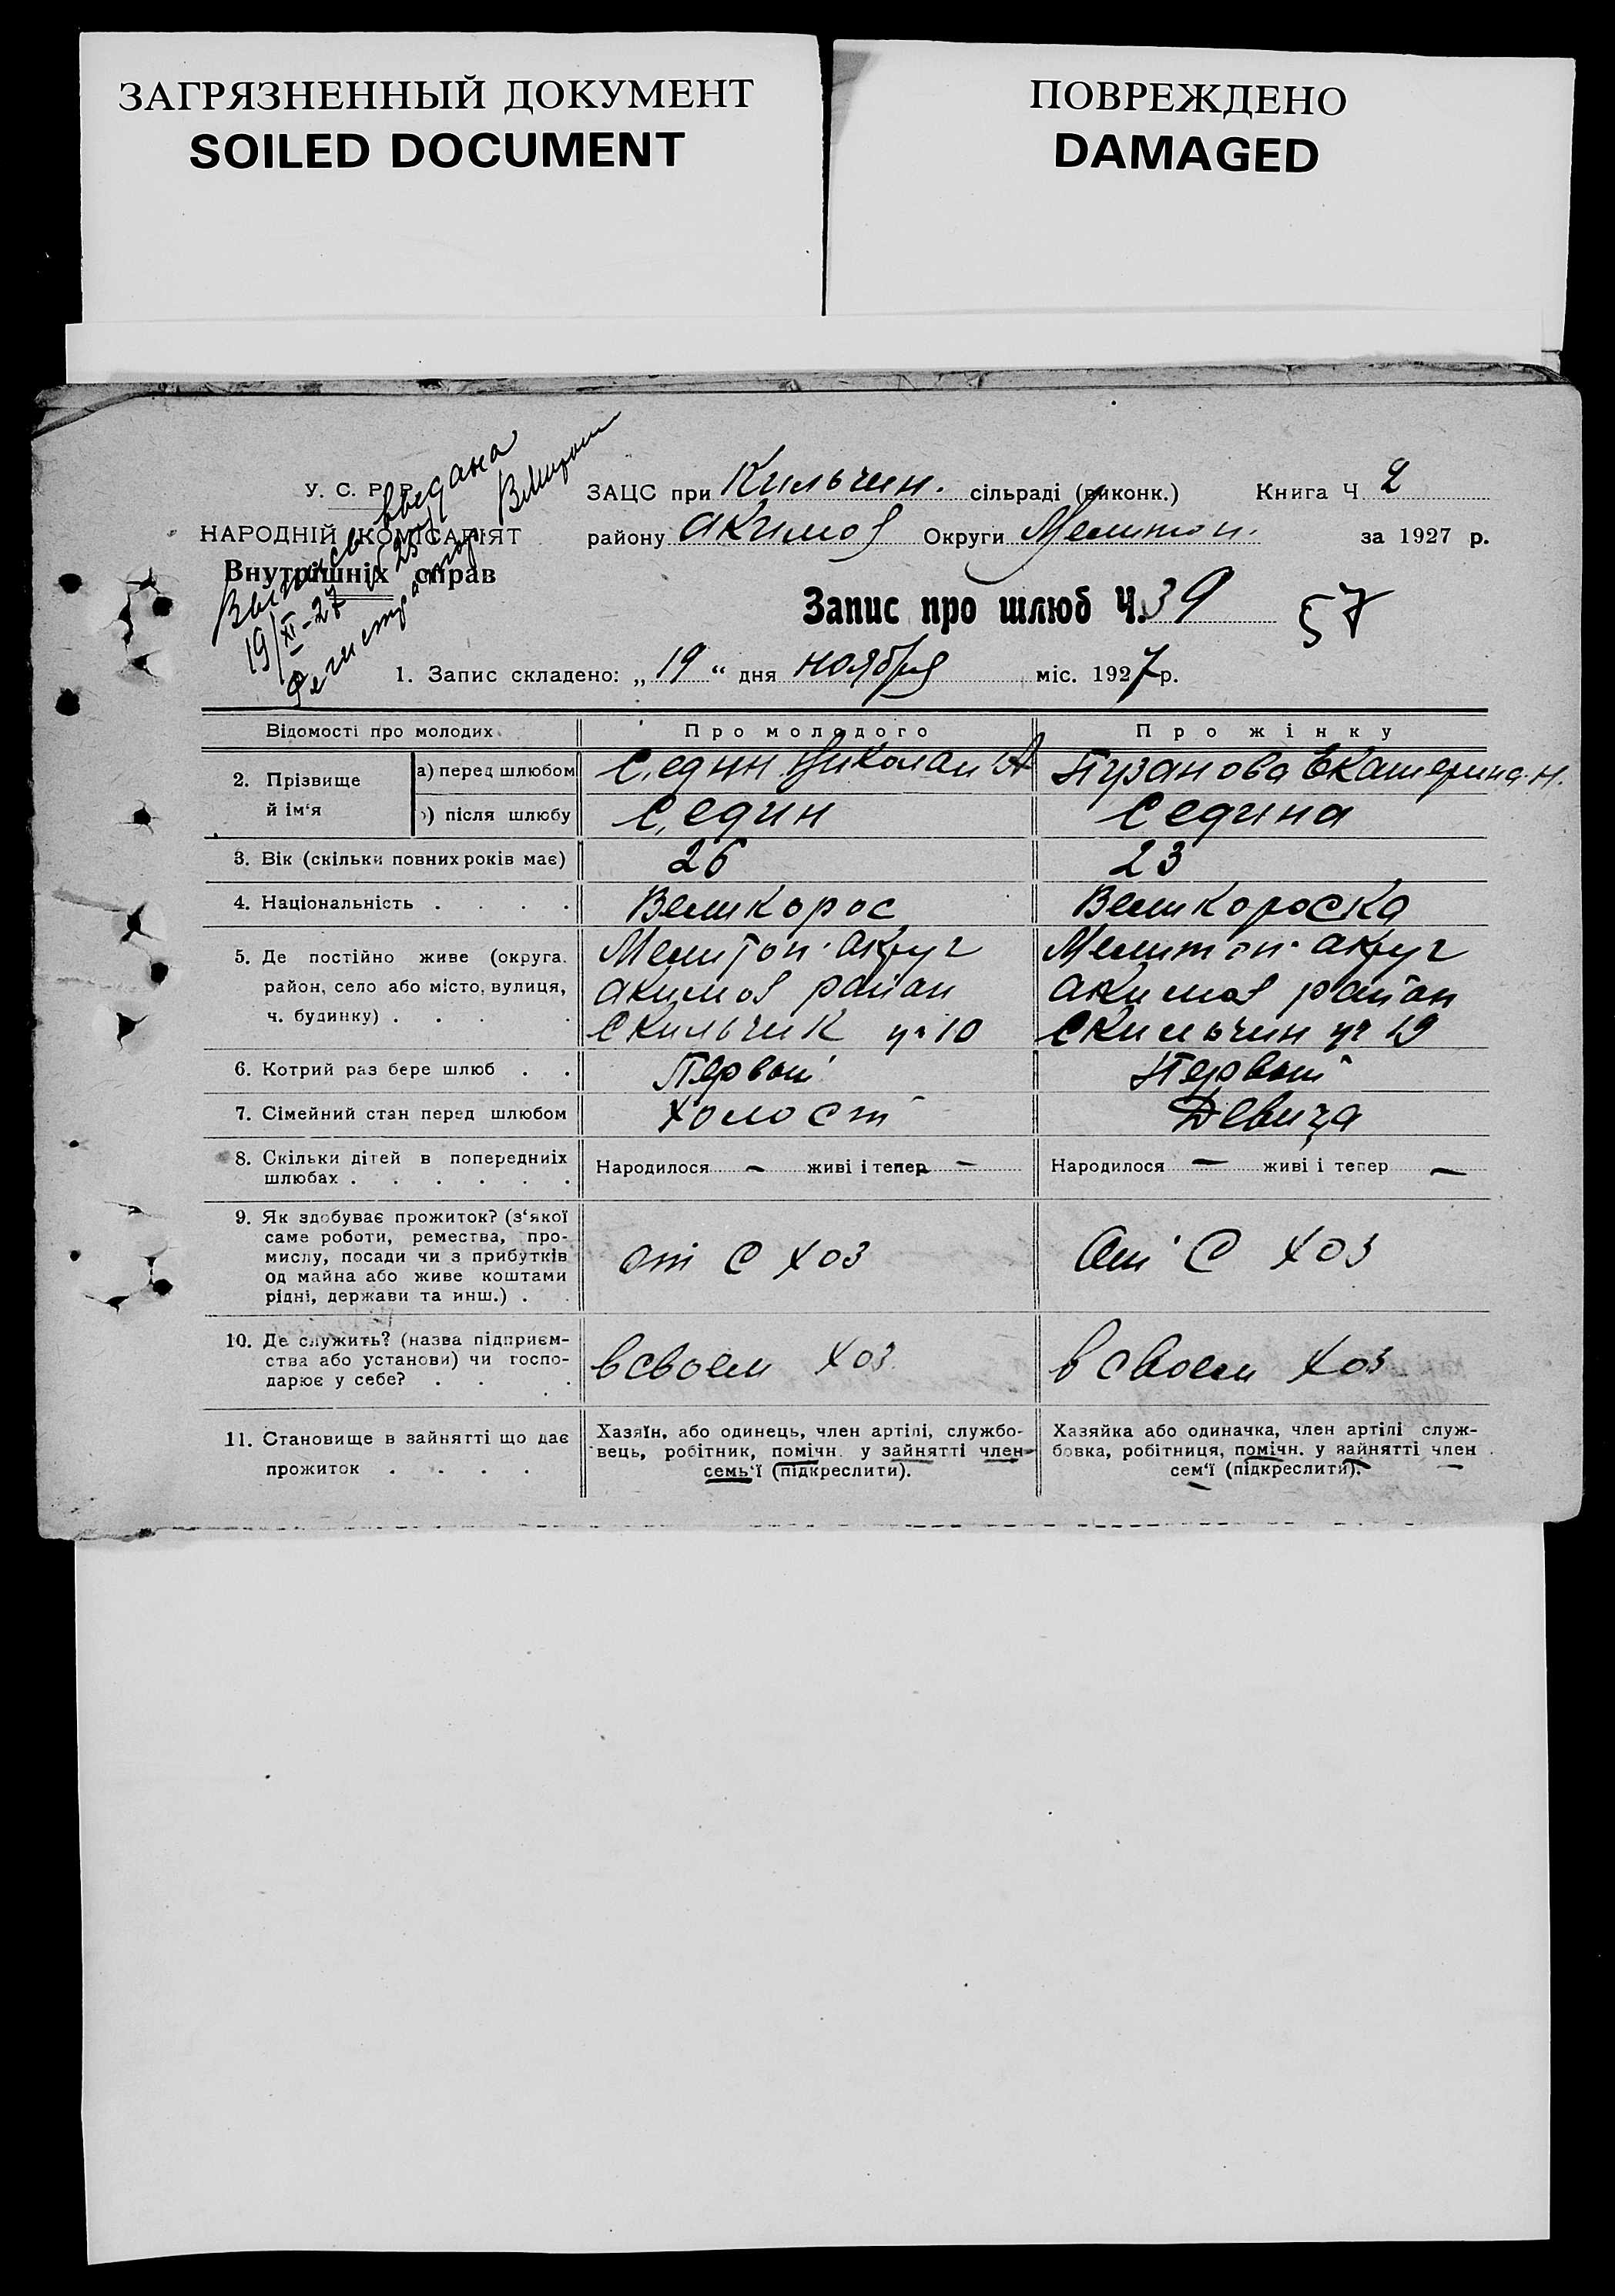 ЗАГРЯЗНЕННЫЙ ДОКУМЕНТ
SOILED DOCUMENT
ПОВРЕЖДЕНО
DAMAGED
У. С. Р. Р.
НАРОДНІЙ КОМІСАРІЯТ
Внутрішніх справ
Выпись выдана
19/XI-27
Регистратор
ЗАЦС при Кильчин. сільраді (виконк.) Книга Ч 2
району Акимов Округи Мелитоп. за 1927 р.
Запис про шлюб Ч. 39 57
1. Запис складено: „19“ дня ноября міс. 1927 р.
Відомості про молодих Про молодого Про жінку
2. Прізвище й ім‘я
а) перед шлюбом Седин Николай А Пузанова Екатерина Н.
б) після шлюбу Седин Седина
3. Вік (скільки повних років має) 26 23
4. Національність . . . . Великорос Великороска
5. Де постійно живе (округа. район, село або місто, вулиця, ч. будинку) . . . .
Мелитоп. акруг Мелитоп. акруг
Акимов район Акимов район
С Кильчик № 10 С Кильчин № 19
6. Котрий раз бере шлюб . . Первый Первый
7. Сімейний стан перед шлюбом Холост Девица
8. Скільки дітей в попередниіх
шлюбах . . . . . .
Народилося — живі і тепер — Народилося — живі і тепер —
9. Як здобуває прожиток? (з‘якої
саме роботи, ремества, про-
мислу, посади чи з прибутків
од майна або живе коштами
рідні, держави та инш.) .
от С хоз От С хоз
10. Де служить? (назва підприєм-
ства або установи) чи госпо-
дарює у себе? . . .
в своем хоз. в своем хоз
11. Становище в зайнятті що дає
прожиток . . . .
Хазяїн, або одинець, член артілі, службо-
вець, робітник, помічн. у зайнятті член
семь‘ї (підкреслити).
Хазяйка або одиначка, член артілі служ-
бовка, робітниця, помічн. у зайнятті член
сем‘ї (підкреслити).